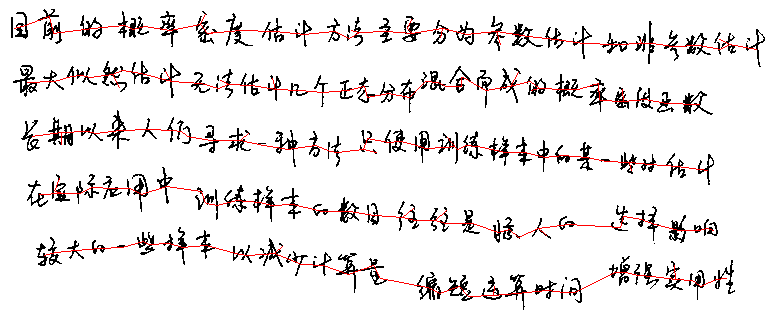 目前的概率密度估计方法主要分为参数估计和非参数估计
最大似然估计无法估计几个正态分布混合而成的概率密度函数
长期以来人们寻求一种方法只使用训练样本中的某一些对估计
在实际应用中训练样本的数目往往是惊人的 选择影响
较大的一些样本以减少计算量 缩短运算时间 增强实用性